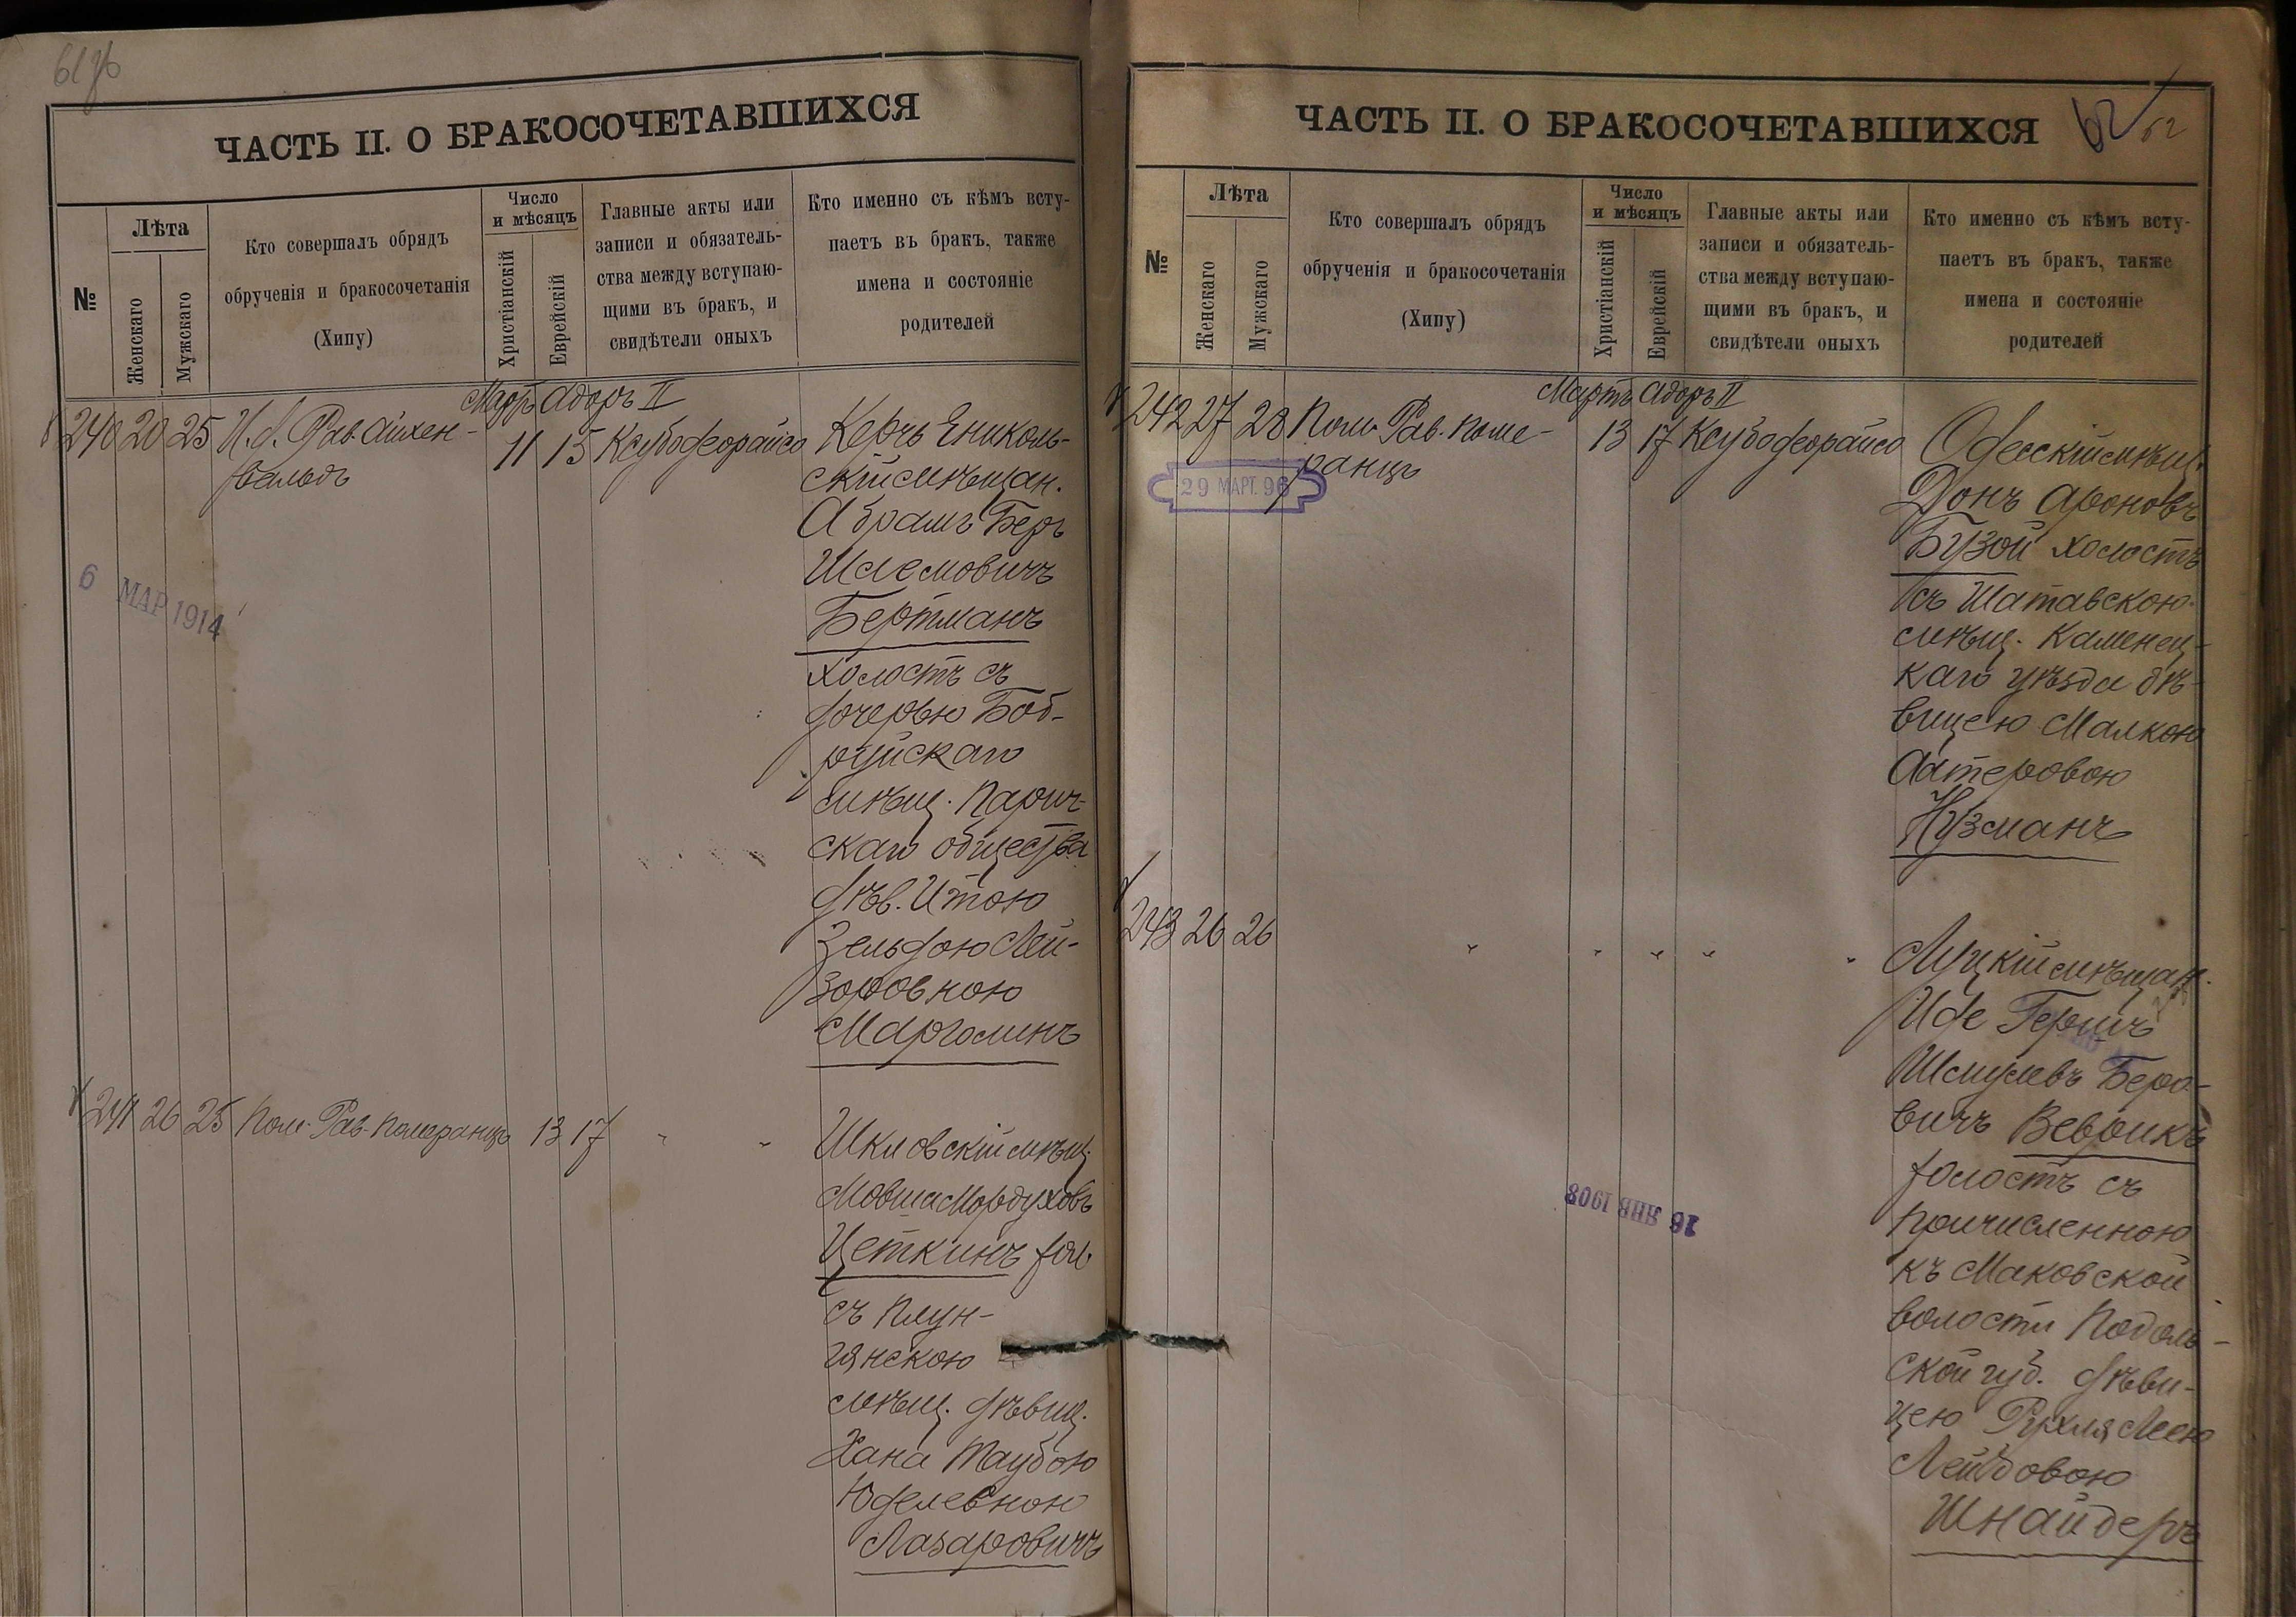 61 об
ЧАСТЬ II. О БРАКОСОЧЕТАВШИХСЯ
№
Лѣта
Женскаго
Мужскаго
Кто совершалъ обрядъ
обрученія и бракосочетанія
(Хипу)
Число
и мѣсяцъ
Христіанскій
Еврейскій
Главные акты или
записи и обязатель-
ства между вступаю-
щими въ бракъ, и
свидѣтели оныхъ
Кто именно съ кѣмъ всту-
паетъ въ бракъ, также
имена и состояніе
родителей
Мартъ Адоръ II
240 20 25 И. д. Рав. Айхен-
вальдъ
11 15 Ксубодеорайсо
Керчь Ениколь-
скій мѣщан.
Абрамъ Беръ
Шлемовичъ
Бертманъ
холостъ съ
дочерью Боб-
руйскаго
мѣщ. Парич-
скаго общества
дѣв. Итою
Зельдою Лей-
зоровною
Марголинъ
6 МАР 1914
241 26 25 Пом. Рав. Померанцъ 13 17 " "
Шкловскій мѣщ.
Мовша Мордуховъ
Цеткинъ хол.
съ Плун-
гянскою
мѣщ. дѣвиц.
Хана Таубою
Юделевною
Лазаровичъ
ЧАСТЬ II. О БРАКОСОЧЕТАВШИХСЯ
62
62
№
Лѣта
Женскаго
Мужскаго
Кто совершалъ обрядъ
обрученія и бракосочетанія
(Хипу)
Число
и мѣсяцъ
Христіанскій
Еврейскій
Главные акты или
записи и обязатель-
ства между вступаю-
щими въ бракъ, и
свидѣтели оныхъ
Кто именно съ кѣмъ всту-
паетъ въ бракъ, также
имена и состояніе
родителей
Мартъ Адоръ II
242 27 28 Пом. Рав. Поме-
ранцъ
13 17 Ксубодеорайсо
29 МАРТ. 96
Одесскій мѣщ.
Донъ Ароновъ
Бузой холостъ
съ Шатавскою
мѣщ. Каменец-
каго уѣзда дѣ-
вицею Малкою
Алтеровою
Нузманъ
243 26 26 " " " " "
Луцкій мѣщан.
Иде Гершъ
Шмулевъ Беро-
вичъ Веврикъ
холостъ съ
причисленною
къ Маковской
волости Подоль-
ской губ. дѣви-
цею Рухля Леею
Лейбовою
Шнайдеръ
16 ЯНВ 1908